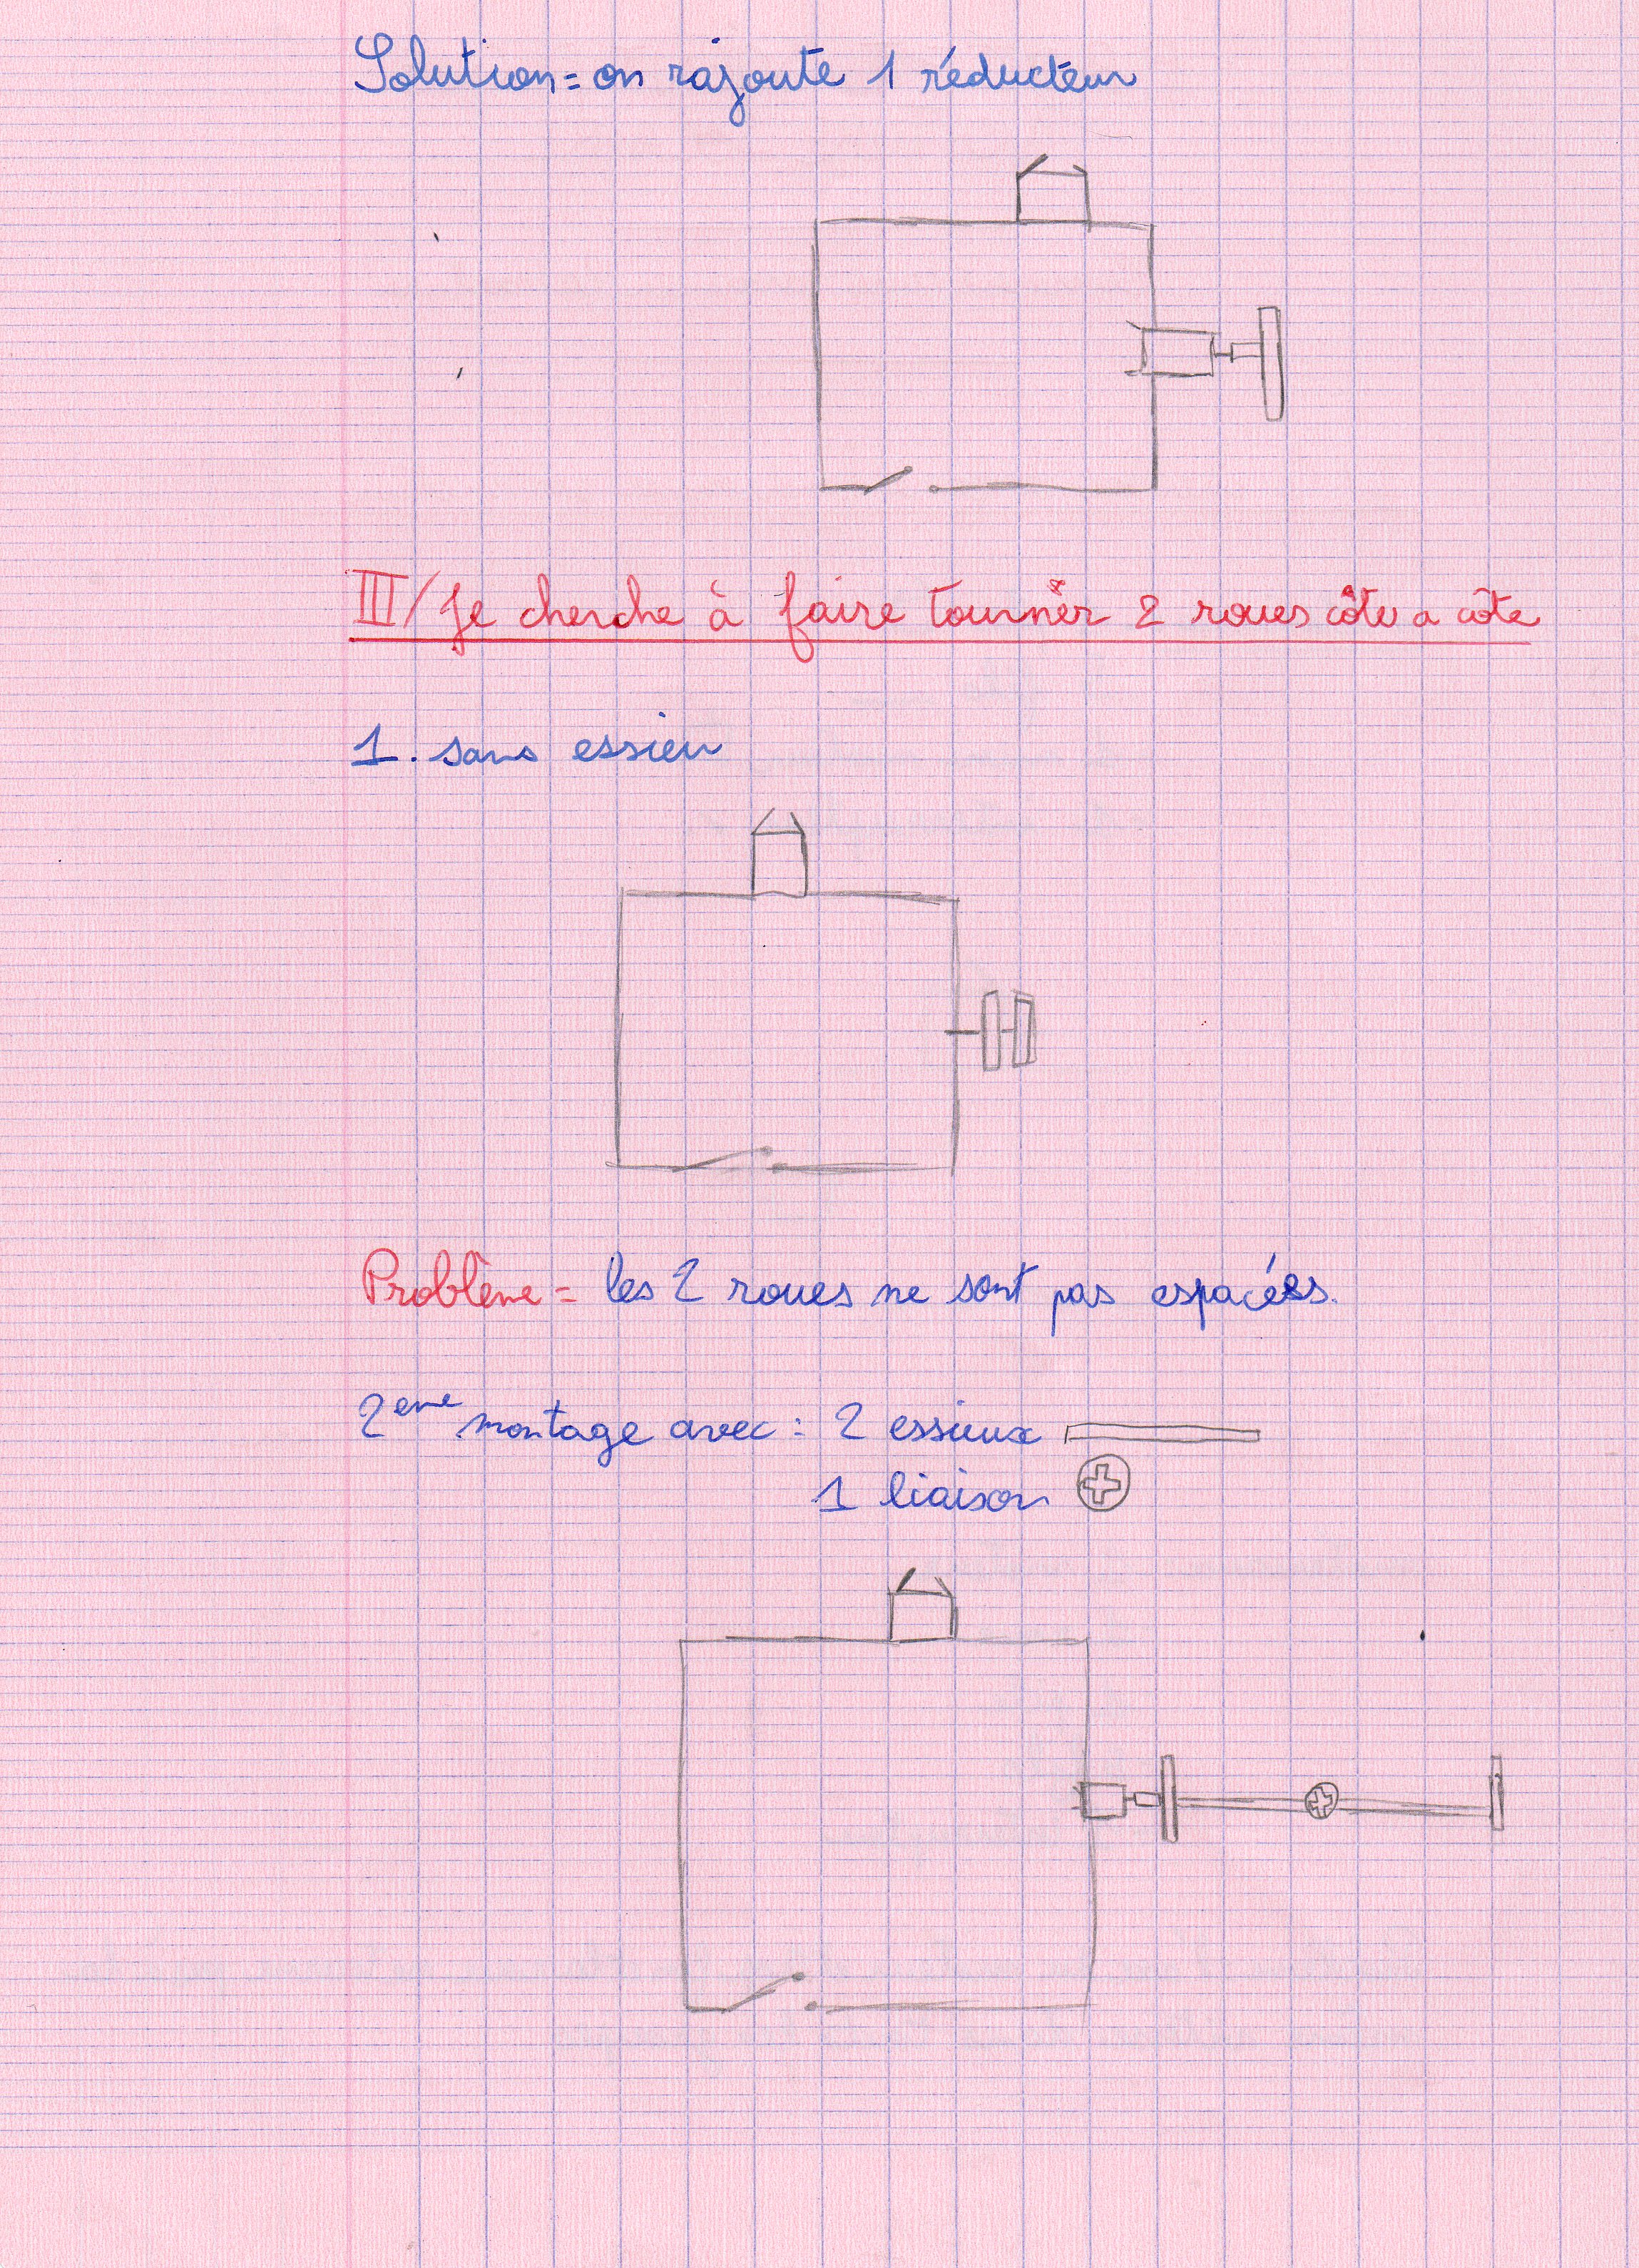 Solution = on rajoute 1 réducteur
III/ Je cherche à faire tourner 2 roues côte a côte
1. sans essieu
Problème = les 2 roues ne sont pas espacées.
2eme montage avec : 2 essieux
1 liaison